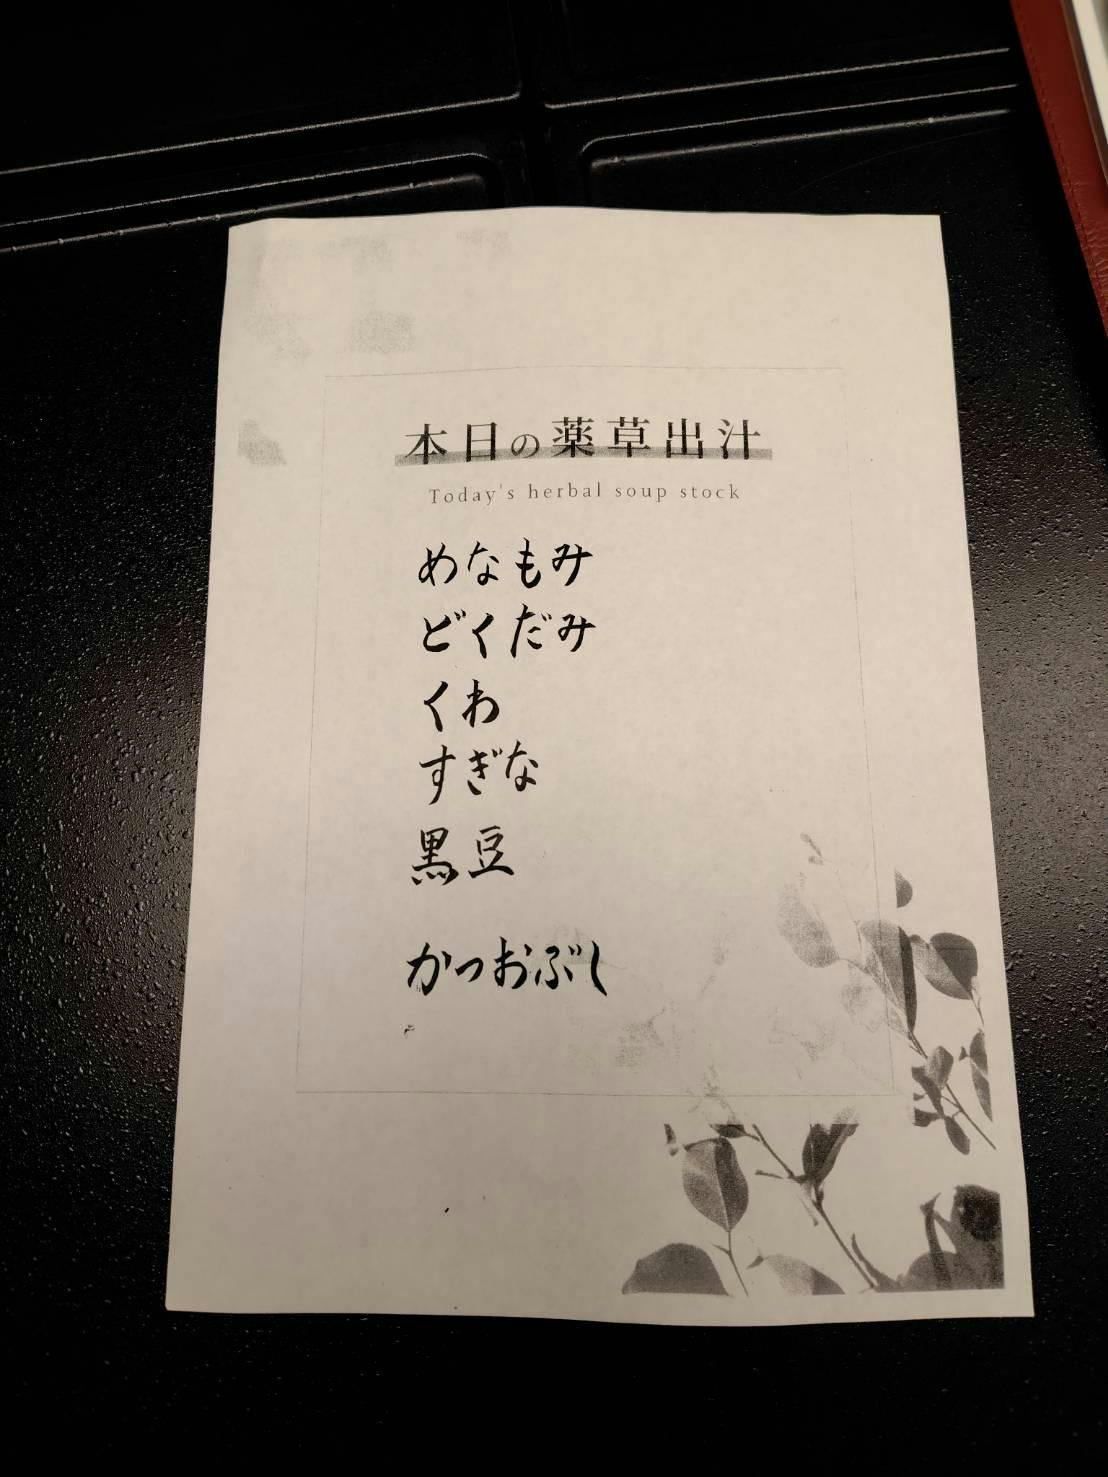 本日の薬草出汁
Today's herbal soup stock
めなもみ
どくだみ
くわ
すぎな
黒豆
かつおぶし